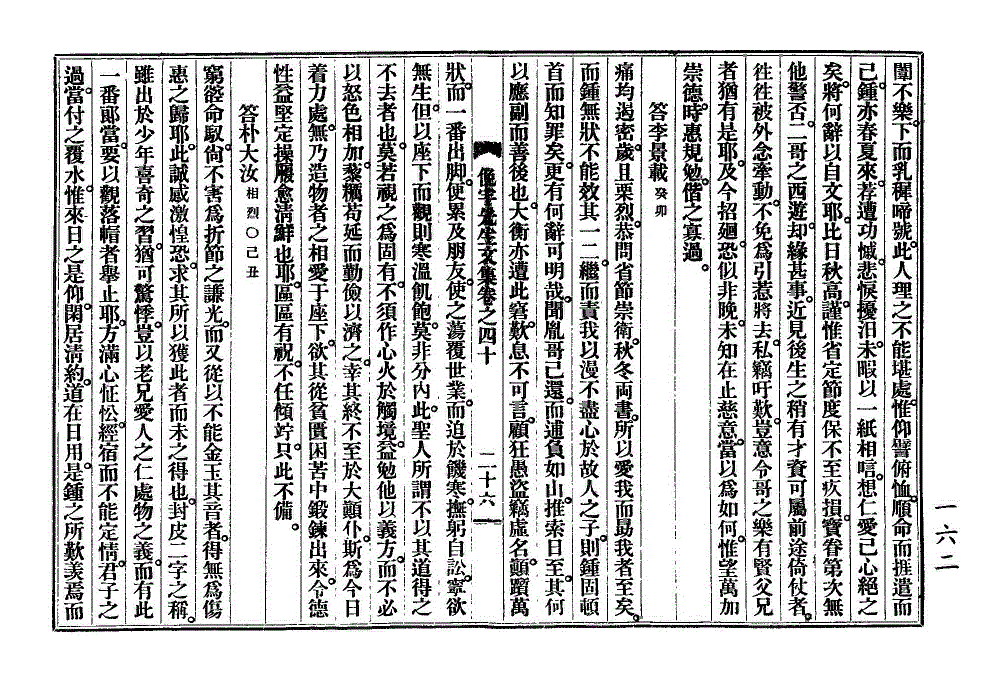 闈不樂下而乳穉啼號此人理之不能堪處惟仰譬俯恤順命而捱遣而
已鍾亦春夏來荐遭功慽悲悷擾汨未暇以一紙相唁想仁愛已心絶之
矣將何辭以自文耶比日秋高謹惟省定節度保不至疚損寶眷第次無
他警否二哥之西遊却緣甚事近見後生之稍有才資可屬前途倚仗者
徃徃被外念牽動不免爲引惹將去私竊吁歎豈意令哥之樂有賢父兄
者猶有是耶及今招廻恐似非晩未知在止慈意當以爲如何惟望萬加
崇德時惠規勉偕之寡過
答李景載 癸卯
痛均遏密歲且栗烈恭問省節崇衛秋冬兩書所以愛我而勖我者至矣
而鍾無狀不能效其一二繼而責我以漫不盡心於故人之子則鍾固頓
首而知罪矣更有何辭可明哉聞胤哥已還而逋負如山推索日至其何
以應副而善後也大衡亦遭此窘歎息不可言顧狂愚盜竊虛名顚躓萬
俛宇先生文集卷之四十 二十六
狀而一番出脚便累及朋友使之蕩覆世業而迫於饑寒撫躬自訟寧欲
無生但以座下而觀則寒溫飢飽莫非分內此聖人所謂不以其道得之
不去者也莫若視之爲固有不須作心火於觸境益勉他以義方而不必
以怒色相加藜糲苟延而勤儉以濟之幸其終不至於大顚仆斯爲今日
着力處無乃造物者之相愛于座下欲其從貧匱困苦中鍛鍊出來令德
性益堅定操履愈淸鮮也耶區區有祝不任傾竚只此不備
答朴大汝 相烈○己丑
窮谽命馭尙不害爲折節之謙光而又從以不能金玉其音者得無爲傷
惠之歸耶此誠感激惶恐求其所以獲此者而未之得也封皮二字之稱
雖出於少年喜奇之習猶可驚悸豈以老兄愛人之仁處物之義而有此
一番郎當要以觀落帽者擧止耶方滿心怔忪經宿而不能定情君子之
過當付之覆水惟來日之是仰閑居淸約道在日用是鍾之所歎羡焉而
一六二